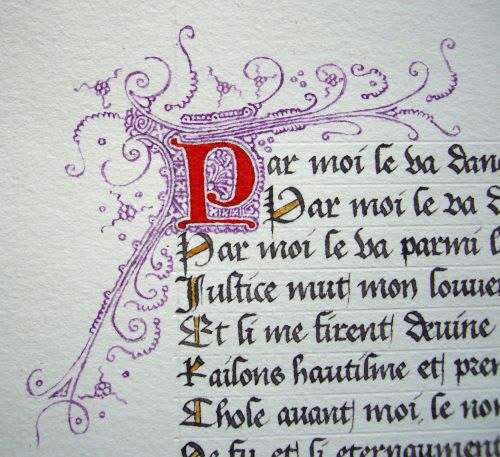 Par moi ſe va dans
Par moi ſe va d
Par moi ſe va parmi l
Juſtice mut mon ſouver
Et ſi me firent deuine
Raiſons hautiſme et prem
Choſe auant moi, ne no
Ne fu, et ſi eternaument